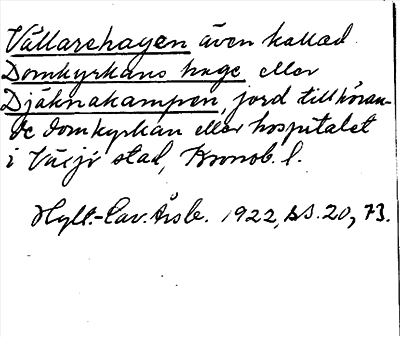 Vällarehagen även kallad
Domkyrkans hage eller
Djäknakampen, jord tillhöran-
de domkyrkan eller hospitalet
i Växjö stad, Kronob. l.
Hylt.-Cav. Årsb. 1922, ss. 20, 73.